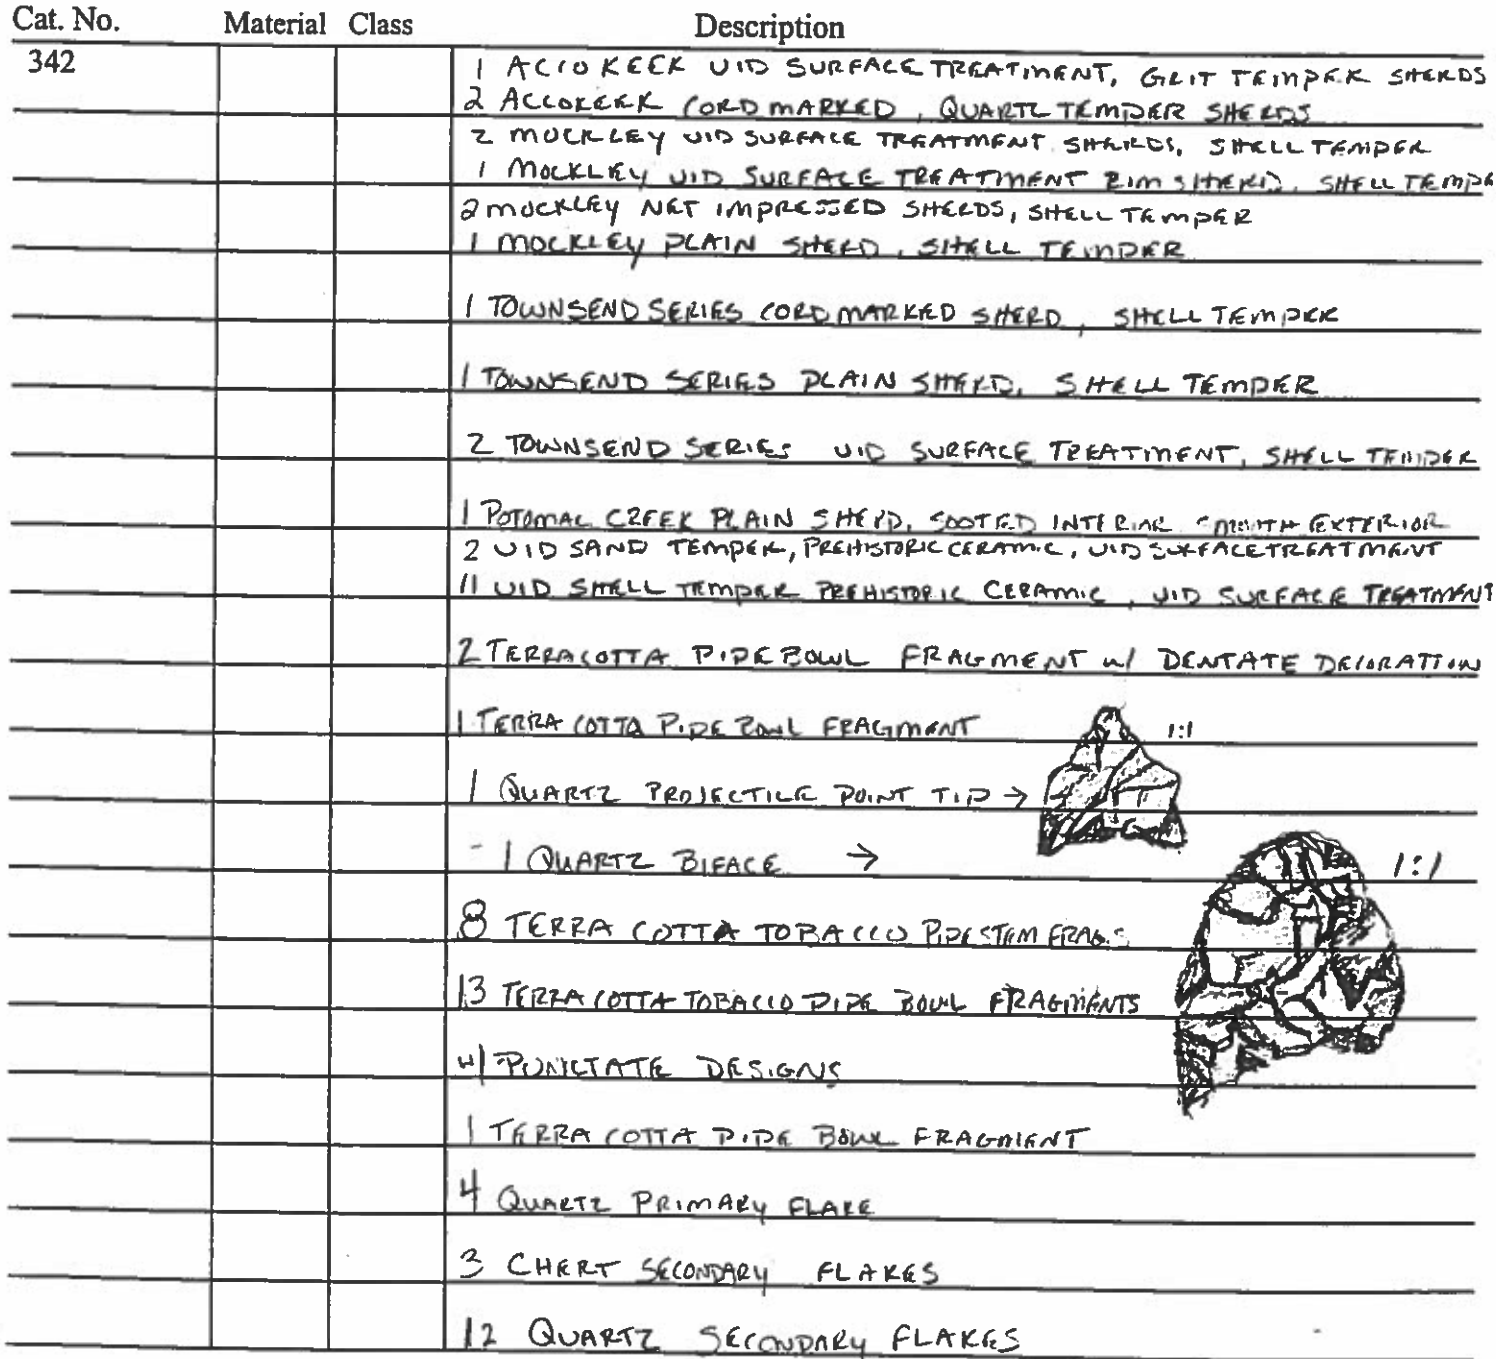 Cat. No. Material Class Description
342
1 ACCOKEEK UID SURFACE TREATMENT, GRIT TEMPER SHERDS
2 ACCOKEEK CORD MARKED, QUARTZ TEMPER SHERDS
2 MOCKLEY UID SURFACE TREATMENT SHERDS, SHELL TEMPER
1 MOCKLEY UID SURFACE TREATMENT RIM SHERD, SHELL TEMPE
2 MOCKLEY NET IMPRESSED SHERDS, SHELL TEMPER
1 MOCKLEY PLAIN SHERD, SHELL TEMPER
1 TOWNSEND SERIES CORD MARKED SHERD, SHELL TEMPER
1 TOWNSEND SERIES PLAIN SHERD, SHELL TEMPER
2 TOWNSEND SERIES UID SURFACE TREATMENT, SHELL TEMPER
1 POTOMAC CREEK PLAIN SHERD, SOOTED INTERIOR SMOOTH EXTERIOR
2 UID SAND TEMPER, PREHISTORIC CERAMIC, UID SURFACE TREATMENT
11 UID SHELL TEMPER PREHISTORIC CERAMIC, UID SURFACE TREATMENT
2 TERRACOTTA PIPE BOWL FRAGMENT w/ DENTATE DECORATION
1 TERRA COTTA PIPE BOWL FRAGMENT 1:1
1 QUARTZ PROJECTILE POINT TIP →
- 1 QUARTZ BIFACE → 1:1
8 TERRA COTTA TOBACCO PIPESTEM FRAGS
13 TERRA COTTA TOBACCO PIPE BOWL FRAGMENTS
w/ PUNCTATE DESIGNS
1 TERRA COTTA PIPE BOWL FRAGMENT
4 QUARTZ PRIMARY FLAKE
3 CHERT SECONDARY FLAKES
12 QUARTZ SECONDARY FLAKES